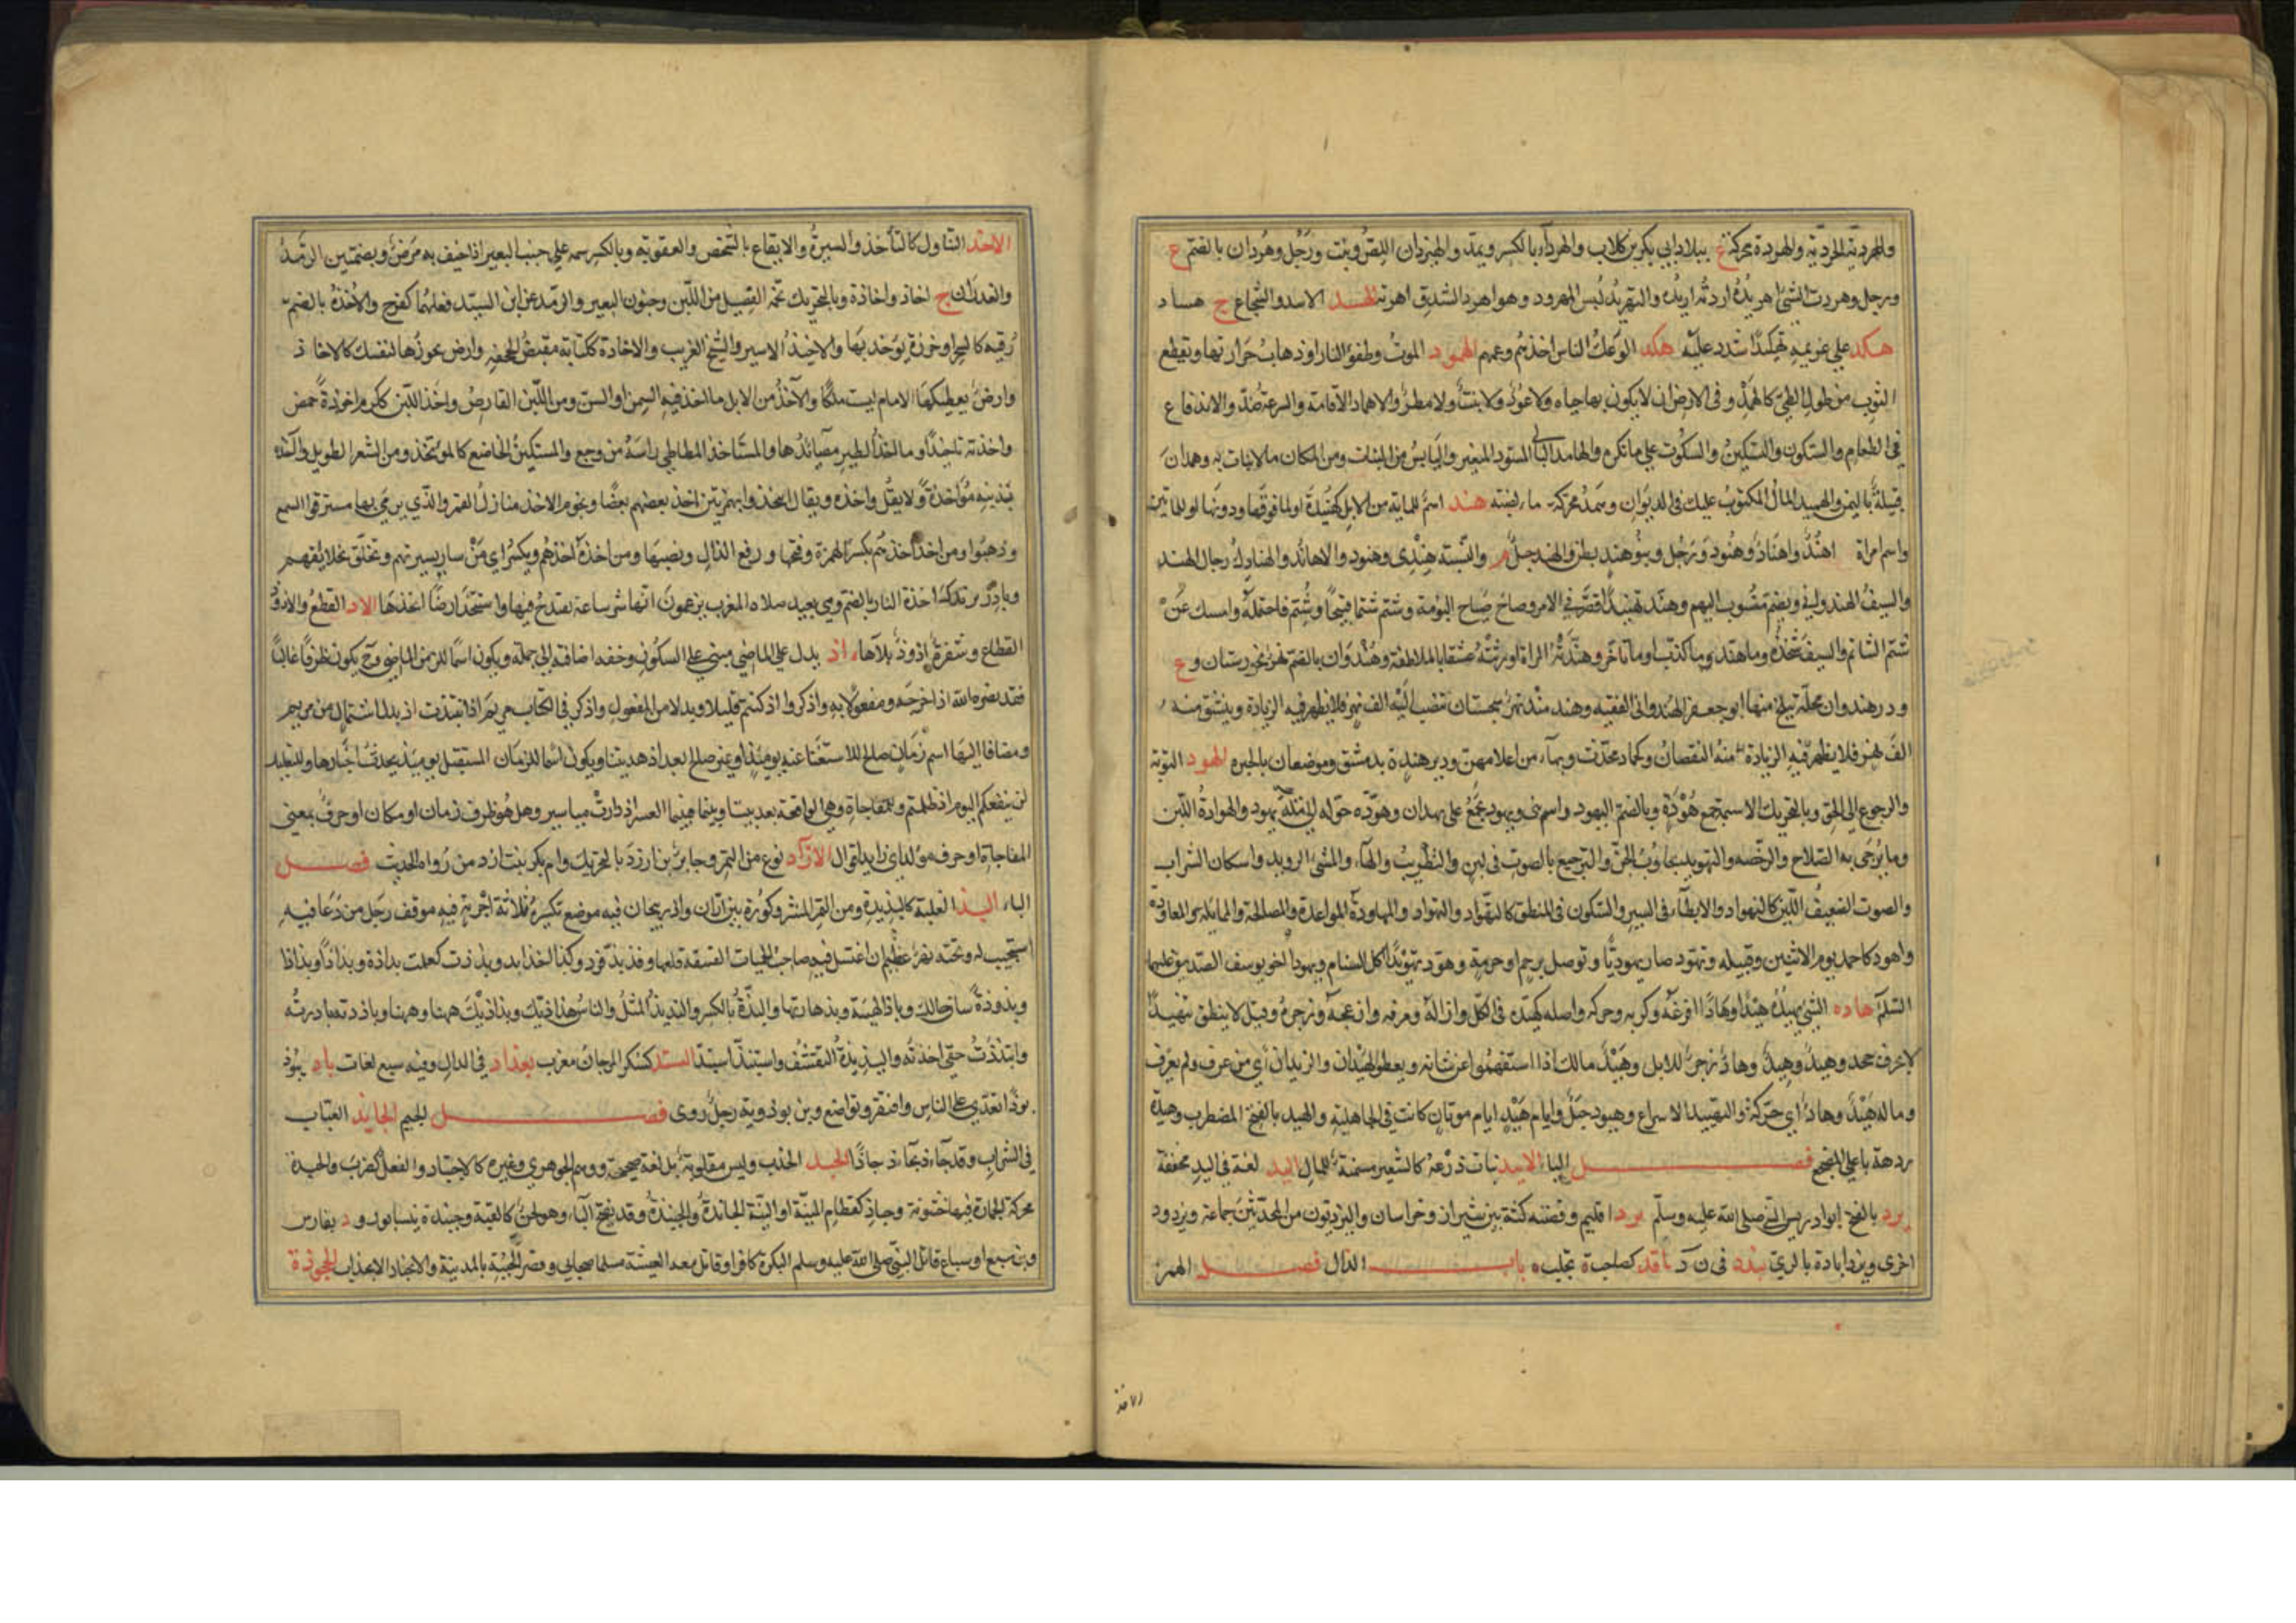 والهردية الحردية والهردة محركة ع ببلاد ابي بكر بن كلاب والهرداء بالكسر ويمد والهيردان اللص ونبت ورجل وهردان بالضم ع
ورجل وهردت الشئ اهريده اردته اريده والتهريد لبس المهرود وهو اهرد الشدق اهرته الهسد الاسد والشجاع ج هساد
هكد علي غريمه تهكيدا شدد عليه هكد الوعك الناس اخذتهم وعمهم الهمود الموت وطفؤ النار او ذهاب حرارتها وتقطع
الثوب من طول الطي كالهمد وفي الارض ان لا يكون بها حياه ولا عود ولا نبت ولا مطر والاهماد الاقامة والسرعة ضد والاندفاع
في الطعام والسكون والتسكين والسكوت علي ما تكره والهامد البالي المسود المتغير واليابس من النبات ومن المكان ما لا نبات به وهمدان
قبيلة باليمن والهميد المال المكتوب عليك في الديوان وهمد محركة ماء لضبة هند اسم للماية من الابل كهنيدة او لما فوقها ودونها او للمائتين
واسم امراة اهند واهناد وهنود ورجل وبنو هند بطن والهند جيل م والنسبة هندي وهنود والاهاند والهنادك رجال الهند
والسيف الهندواني ويضم منسوب اليهم وهند تهنيدا قصر في الامر وصاح صياح البومة وشتم شتما قبيحا وشتم فاحتمله وامسك عن
شتم الشاتم والسيف شحذه وما هند وما كذب او ما تاخر وهندته المراة اورثته عشقا بالملاطفة وهندوان بالضم نهر بخوزستان وع
ودرهندوان محلة ببلخ منها ابو جعفر الهندواني الفقيه وهند مند نهر بسجستان تنصب اليه الف نهر فلا يظهر فيه الزيادة وينشق منه
الف نهر فلا يظهر فيه الزيادة منه النقصان وكماد محدث وبهاء من اعلامهن ودير هندة بدمشق وموضعان بالحيرة الهود التوبة
والرجوع الي الحق وبالتحريك الاسنمة جمع هودة وبالضم اليهود واسم نبي ويهود يجمع على يهدان وهوده حوله الي ملة يهود والهوادة اللين
وما يرجى به الصلاح والرخصه والتهويد تجاوب الجن والترجيع بالصوت في لين والتطريب والهاء والمشي الرويد واسكان الشراب
والصوت الضعيف اللين كالتهواد والابطاء في السير والسكون في المنطق كالتهود والتهواد والمهاودة المواعدة والمصالحة والممايلة والمعاودة
واهود كاحمد يوم الاثنين وقبيله وتهود صار يهوديا وتوصل برحم او حرمة وهود تهويدا اكل السنام ويهودا اخو يوسف الصديق عليهما
السلم هاده الشئ يهيده هيدا وهادا افزعه وكربه وحركه واصله كهيده في الكل وازاله وصرفه وازعجه وزجره وقيل لا ينطق تيهيد الا
بحرف جحد وهيد وهيد وهاد زجر للابل وهيد مالك اذا استفهموا عن شانه ويعطى الهيدان والزيدان اي من عرف ولم يعرف
وما له هيد وهاد اي حركة والتهييد الاسراع وهيود جبل وايام هيد ايام موتان كانت في الجاهلية والهيد بالفتح المضطرب وهيدة
ردهة باعلي المضجع فصل الياء الابيد نبات ذرعه كالشعير مسمنة للمال اليد لغة في اليد مخففة
يرد بالفتح ابو ادريس النبي صلى الله عليه وسلم يزد اقليم وقصبته كثة بين شيراز وخراسان واليزديون من المحدثين جماعة ويزدود
اخري ويزداباذة بالري ينده في ن د ياقد كصاحبة بحلب باب الذال فصل الهمز
الاخذ
الاخذ التناول كالتأخذ والسيرة والايقاع بالشخص والعقوبة وبالكسر سمه علي جنب البعير اذا خيف به مرض وبضمتين الرمد
والغدران ج اخاذ واخاذة وبالتحريك تخمة الفصيل من اللبن وجنون البعير والرمد عن ابن السيد فعلهما كفرح والاخذة بالضم
رقية كالسحر او خرزة يوخذ بها والاخيذ الاسير والشيخ الغريب والاخاذة ككتابة مقبض الحجفة وارض تحوزها لنفسك كالاخاذ
وارض يعطيكها الامام ليست ملكا والآخذ من الابل ما اخذ فيه السمن او السن ومن اللبن القارص واخذ اللبن ككرم اخوذة حمض
واخذته تاخيذا وماخذ الطير مصائدها والمستاخذ المطاطي راسه من وجع والمستكين الخاضع كالموتخذ ومن الشعر الطويل وآخذه
بذنبه مؤاخذة ولا يقل واخذه ويقال ائتخذوا بهمزتين اخذ بعضهم بعضا ونجوم الاخذ منازل القمر والذي يرمي بها مسترقوا السمع
وذهبوا ومن اخذ اخذهم بكسر الهمزة وفتحها ورفع الذال ونصبها ومن اخذه اخذهم ويكسر اي من سار بسيرتهم وتخلق بخلايقهم
وبادر بزندك اخذة النار بالضم وهي بعيد صلاه المغرب يزعمون انها شر ساعة يقتدح فيها واستخذ ارضا اتخذها الاذ القطع والاذوذ
القطاع وشفرة اذوذ بلا هاء اذ يدل علي الماضي مبني علي السكون وحقه اضافة الى جملة ويكون اسما للزمن الماضي وح يكون ظرفا غالبا
فقد نصره الله اذ اخرجه ومفعولا به واذكروا اذ كنتم قليلا وبدلا من المفعول واذكر في الكتاب مريم اذ انتبذت اذ بدل اشتمال من مريم
ومضافا اليها اسم زمان صالح للاستغنا عنه يومئذ او غير صالح بعد اذ هديتنا ويكون اسما للزمان المستقبل يومئذ تحدث اخبارها وللتعليل
لن ينفعكم اليوم اذ ظلمتم وللمفاجاة وهي الواقعة بعد بينا وبينما فبينما العسر اذ دارت مياسير وهل هو ظرف زمان او مكان او حرف بمعني
المفاجاة او حرف مؤكد اي زايد اقوال الازاذ نوع من التمر وجابر بن ازذ بالتحريك وام بكر بنت ازذ من رواه الحديث فصل
الباء البذ الغلبة كالبذيذة ومن التمر المنتثر وكورة بين اران واذربيجان فيه موضع تكسيره ثلاثة اجربة فيه موقف رجل من دعا فيه
استجيب له وتحته نهر عظيم ان اغتسل فيه صاحب الحميات العتيقة قلعها وفذ بذ فرد وكذا احد ابذ وبذذت كعلمت بذاذة وبذاذا وبذاذا
وبذوذة سات حالك وباذ الهيئة وبذها رثها والبذة بالكسر والبذيذ المثل والناس هذاذيك وبذاذيك ههنا وههنا وباذذت مباذرته
وابتذذت حقي اخذته والبذيذة التقشف واستبذ استبد البستذ كسكر المرجان معرب بغداذ في الدال وفيه سبع لغات باذ يبوذ
بوذا تعدي على الناس وافتقر وتواضع وبن بوذويه رجل روى فصل الجيم الجايذ العباب
في الشراب وقد جاذ جاذا الجبذ الجذب وليس مقلوبه بل لغة صحيحة ووهم الجوهري وغيره كالاجتباذ والفعل كضرب والجبذة
محركة الجمارة فيها خشونة وجباذ كقطام المنية او النية الجابذة والجنبذة وقد تفتح الباء وهو لحن كالقبة وجنبذ ة بنيسابور ود بفارس
وبن سبع او سباع قاتل النبي صلى الله عليه وسلم البكرة كافرا وقاتل معه العيشة مسلما صحابي وقصر الجنبذ بالمدينة والانجباذ الانجذاب الجوذة